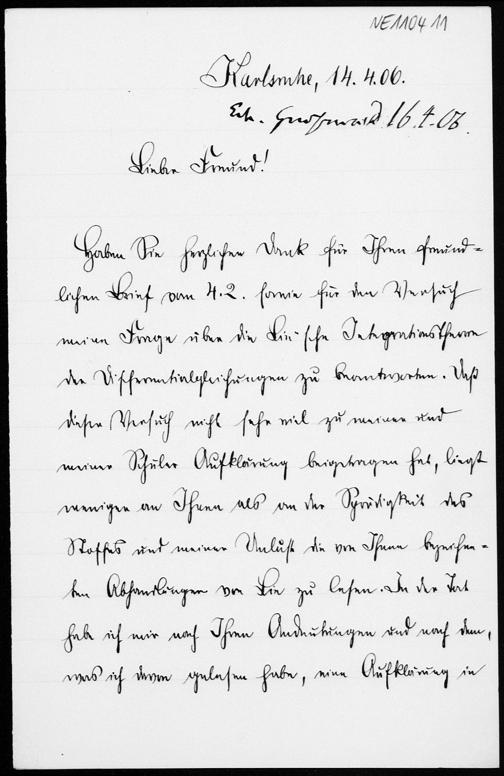 NE110411
Karlsruhe, 14.4.06.
16.4.06.
Lieber Freund!
Haben Sie herzlichen Dank für Ihren freund-
lichen Brief vom 4.2. sowie für den Versuch
meine Frage über die Lie'sche Integrationstheorie
der Differentialgleichungen zu beantworten. Daß
dieser Versuch nicht sehr viel zu meiner und
meiner Schüler Aufklärung beigetragen hat, liegt
weniger an Ihnen als an der Sprödigkeit des
Stoffes und meiner Unlust die von Ihnen bezeichne-
ten Abhandlungen von Lie zu lesen. In der Tat
habe ich mir nach Ihren Andeutungen und nach dem,
was ich davon gelesen habe, eine Aufklärung in